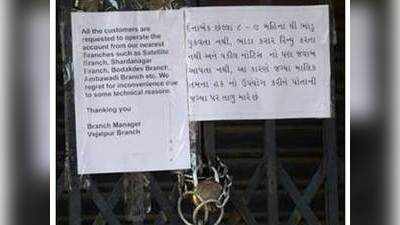 All the customers are
requested to operate the
account from our nearest
Branches such as Satellite
Branch, Shardanagar
Branch, Bodakdev Branch,
Ambawadi Branch etc. We
regret for inconvenience due
to some technical reasons.
Thanking you
Branch Manager
Vejalpur Branch
છેલ્લા ૮ - ૯ મહિના થી ભાડુ
ચુકવતા નથી, ભાડા કરાર રિન્યુ કરતા
નથી અને વકીલ નોટિસ નો પણ જવાબ
આપતા નથી, આ કારણે જગ્યા માલિક
તેમના હક નો ઉપયોગ કરીને પોતાની
જગ્યા પર તાળુ મારે છે